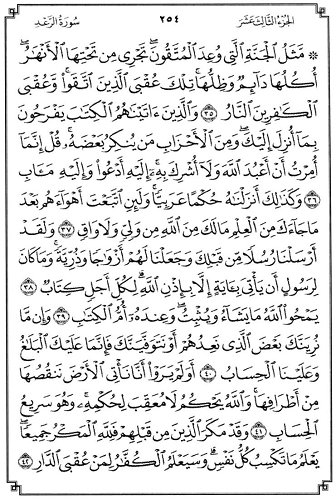 الجزء الثالث عشر ٢٥٤ سورة الرعد
۞ مَّثَلُ ٱلْجَنَّةِ ٱلَّتِى وُعِدَ ٱلْمُتَّقُونَ ۖ تَجْرِى مِن تَحْتِهَا ٱلْأَنْهَـٰرُ ۖ
أُكُلُهَا دَآئِمٌ وَظِلُّهَا ۚ تِلْكَ عُقْبَى ٱلَّذِينَ ٱتَّقَوا۟ ۖ وَّعُقْبَى
ٱلْكَـٰفِرِينَ ٱلنَّارُ ٣٥ وَٱلَّذِينَ ءَاتَيْنَـٰهُمُ ٱلْكِتَـٰبَ يَفْرَحُونَ
بِمَآ أُنزِلَ إِلَيْكَ ۖ وَمِنَ ٱلْأَحْزَابِ مَن يُنكِرُ بَعْضَهُۥ ۚ قُلْ إِنَّمَآ
أُمِرْتُ أَنْ أَعْبُدَ ٱللَّهَ وَلَآ أُشْرِكَ بِهِۦٓ ۚ إِلَيْهِ أَدْعُوا۟ وَإِلَيْهِ مَـَٔابِ
٣٦ وَكَذَٰلِكَ أَنزَلْنَـٰهُ حُكْمًا عَرَبِيًّا ۚ وَلَئِنِ ٱتَّبَعْتَ أَهْوَآءَهُم بَعْدَ
مَا جَآءَكَ مِنَ ٱلْعِلْمِ مَا لَكَ مِنَ ٱللَّهِ مِن وَلِىٍّ وَلَا وَاقٍ ٣٧ وَلَقَدْ
أَرْسَلْنَا رُسُلًا مِّن قَبْلِكَ وَجَعَلْنَا لَهُمْ أَزْوَٰجًا وَذُرِّيَّةً ۚ وَمَا كَانَ
لِرَسُولٍ أَن يَأْتِىَ بِـَٔايَةٍ إِلَّا بِإِذْنِ ٱللَّهِ ۗ لِكُلِّ أَجَلٍ كِتَابٌ ٣٨
يَمْحُوا۟ ٱللَّهُ مَا يَشَآءُ وَيُثْبِتُ ۖ وَعِندَهُۥٓ أُمُّ ٱلْكِتَـٰبِ ٣٩ وَإِن مَّا
نُرِيَنَّكَ بَعْضَ ٱلَّذِى نَعِدُهُمْ أَوْ نَتَوَفَّيَنَّكَ فَإِنَّمَا عَلَيْكَ ٱلْبَلَـٰغُ
وَعَلَيْنَا ٱلْحِسَابُ ٤٠ أَوَلَمْ يَرَوْا۟ أَنَّا نَأْتِى ٱلْأَرْضَ نَنقُصُهَا
مِنْ أَطْرَافِهَا ۚ وَٱللَّهُ يَحْكُمُ لَا مُعَقِّبَ لِحُكْمِهِۦ ۚ وَهُوَ سَرِيعُ
ٱلْحِسَابِ ٤١ وَقَدْ مَكَرَ ٱلَّذِينَ مِن قَبْلِهِمْ فَلِلَّهِ ٱلْمَكْرُ جَمِيعًا ۖ
يَعْلَمُ مَا تَكْسِبُ كُلُّ نَفْسٍ ۗ وَسَيَعْلَمُ ٱلْكُفَّـٰرُ لِمَنْ عُقْبَى ٱلدَّارِ ٤٢